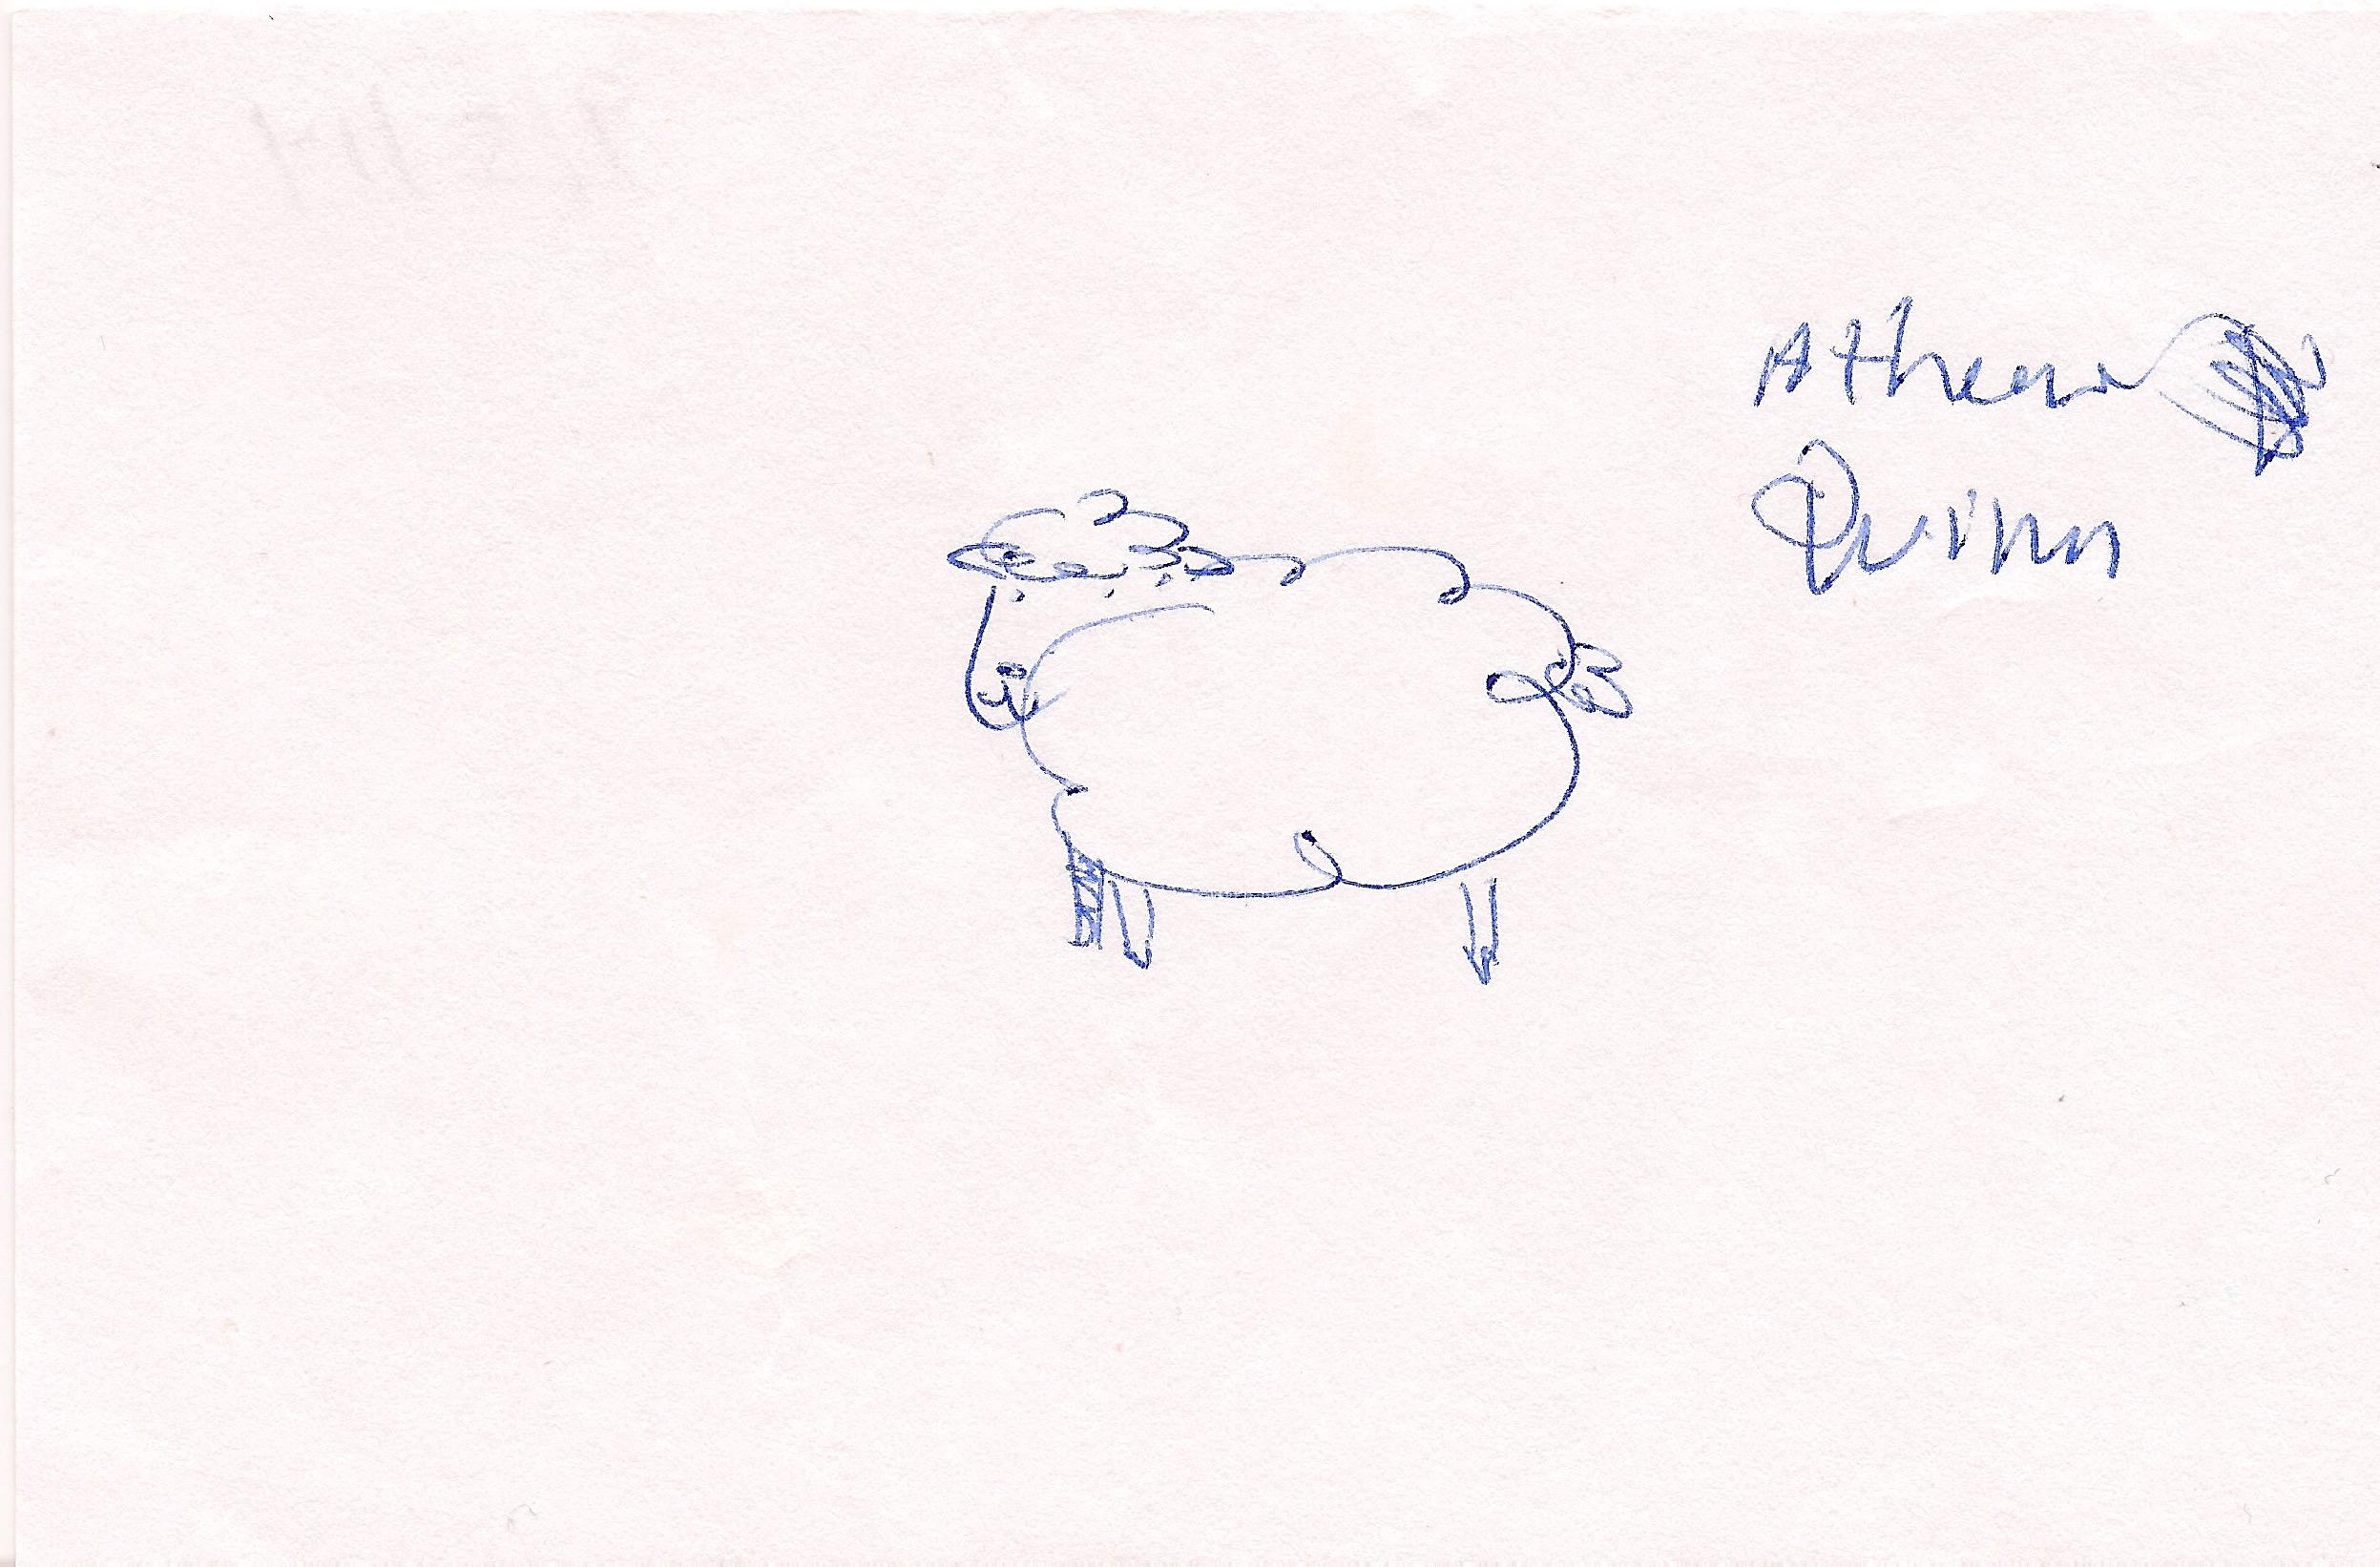 Athena
Quinn